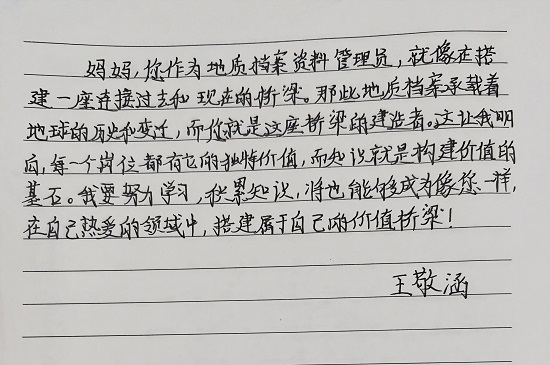 妈妈，您作为地质档案资料管理员，就像在搭
建一座连接过去和现在的桥梁。那些地质档案承载着
地球的历史和变迁，而你就是这座桥梁的建造者。这让我明
白，每一个岗位都有它的独特价值，而知识就是构建价值的
基石。我要努力学习，积累知识，将也能够成为像您一样，
在自己热爱的领域中，搭建属于自己的价值桥梁！
王敬涵